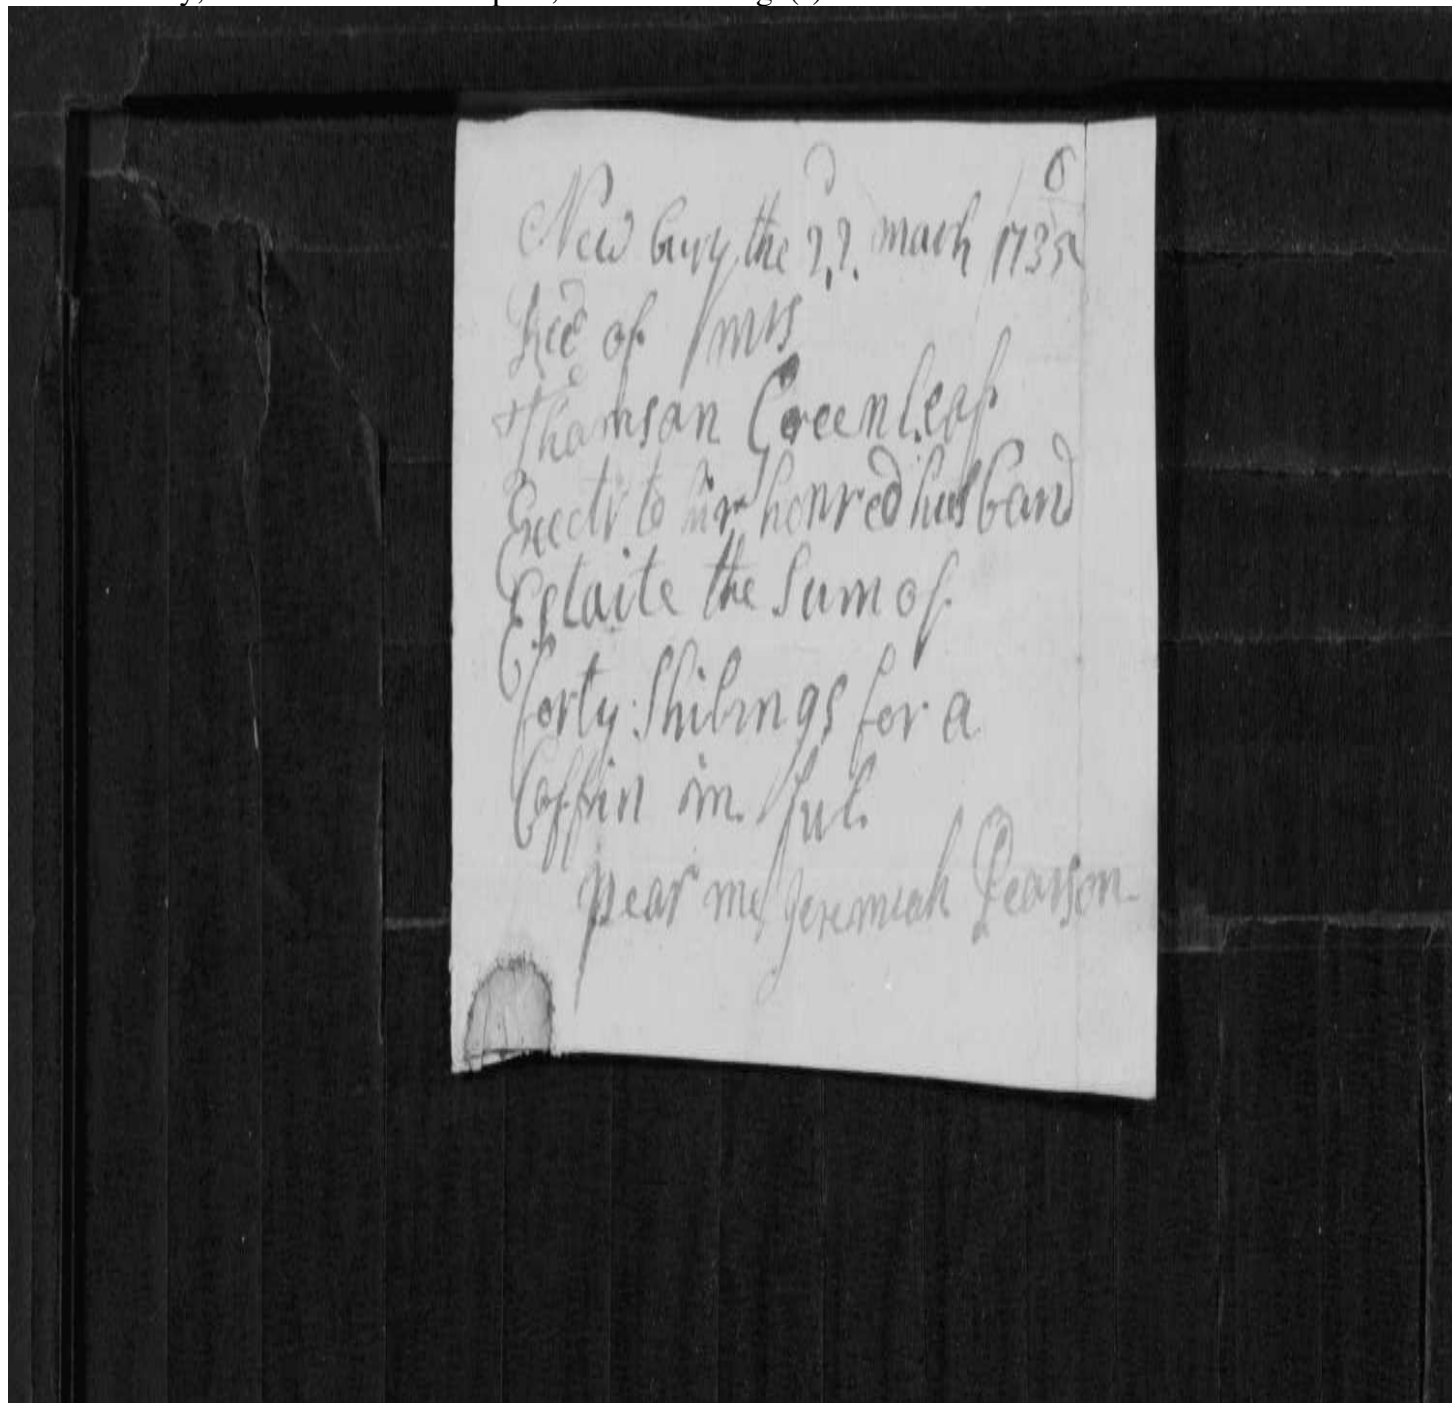 New bury the 22 march 1735/6
Recd of mrs
Thomson Greenleaf
Exectr to hir honred husband
Estaite the Sum of
forty Shilings for a
Coffin in ful
pear me Jeremiah Pearson